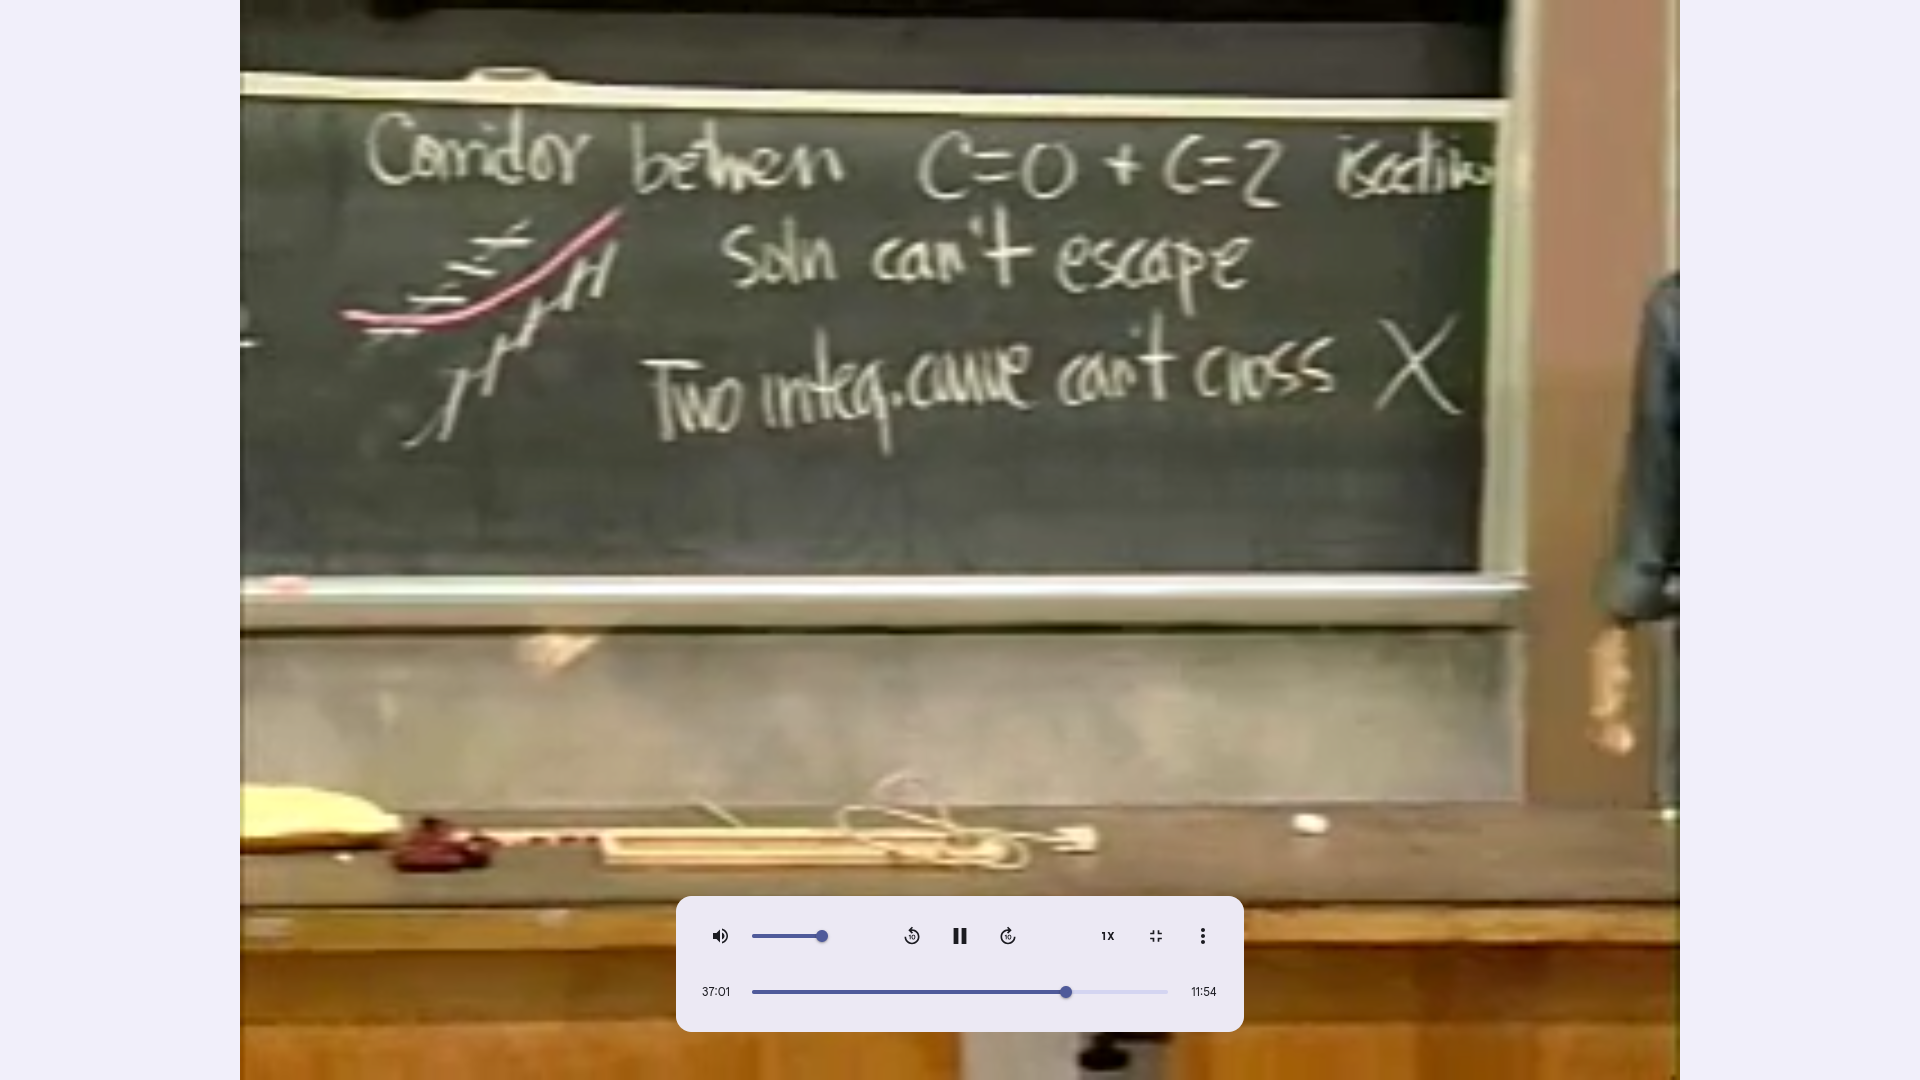 Corridor between C=0 + C=2 isoclin
Soln can't escape
Two integ. curve can't cross X
1X
37:01
11:54